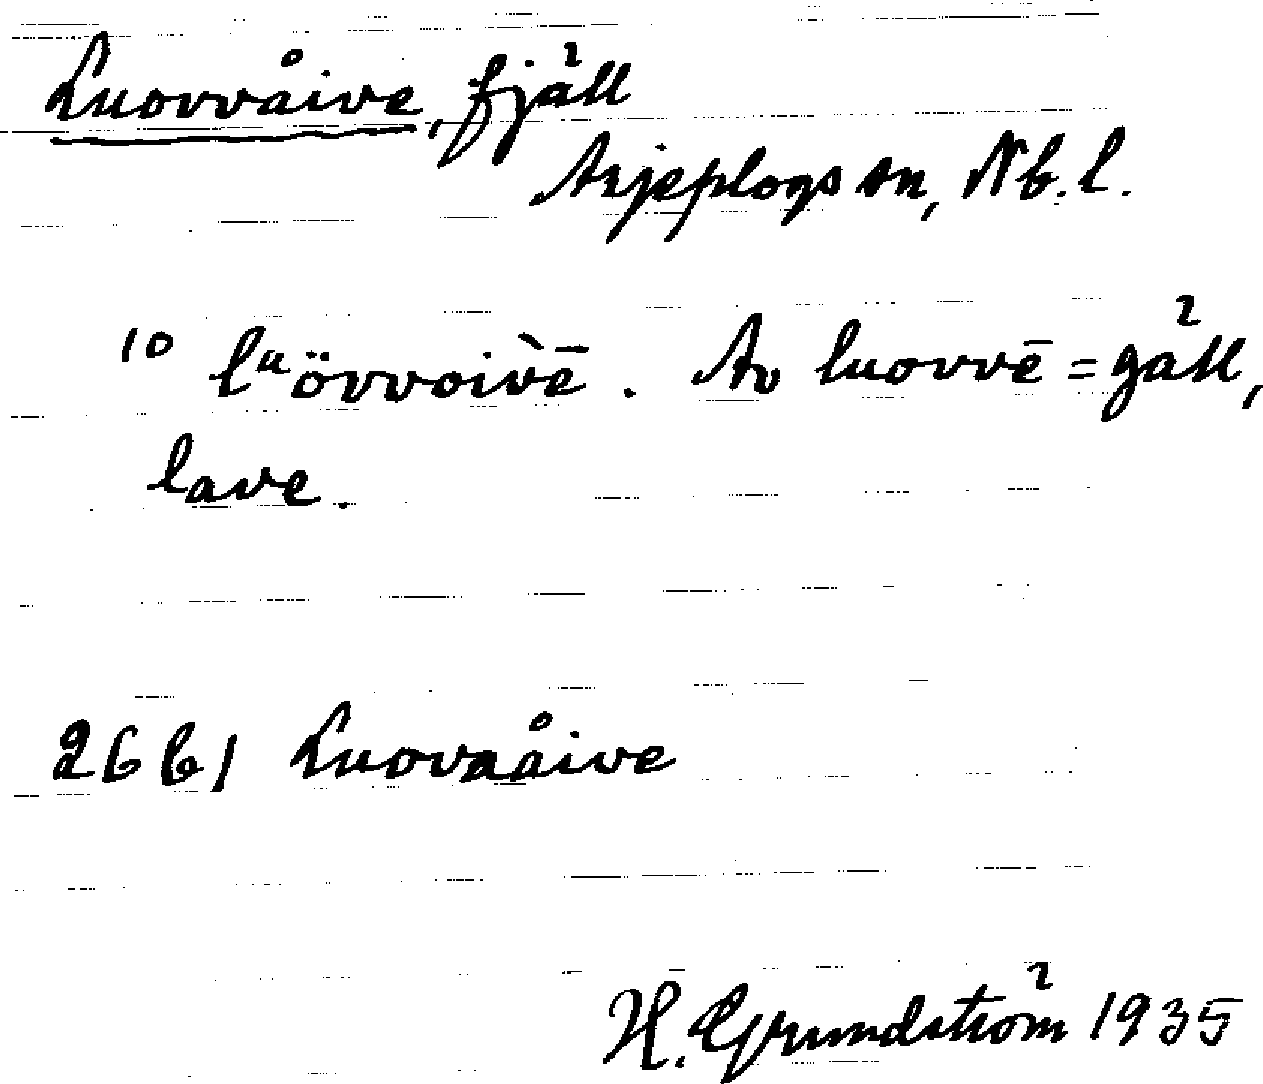 Luovvåive, fjäll
Arjeplogs sn, Nb. l.
10 lᵘövvoìvē. Av luovvē = gäll,
lave.
26 b 1 Luovaåive
H. Grundström 1935